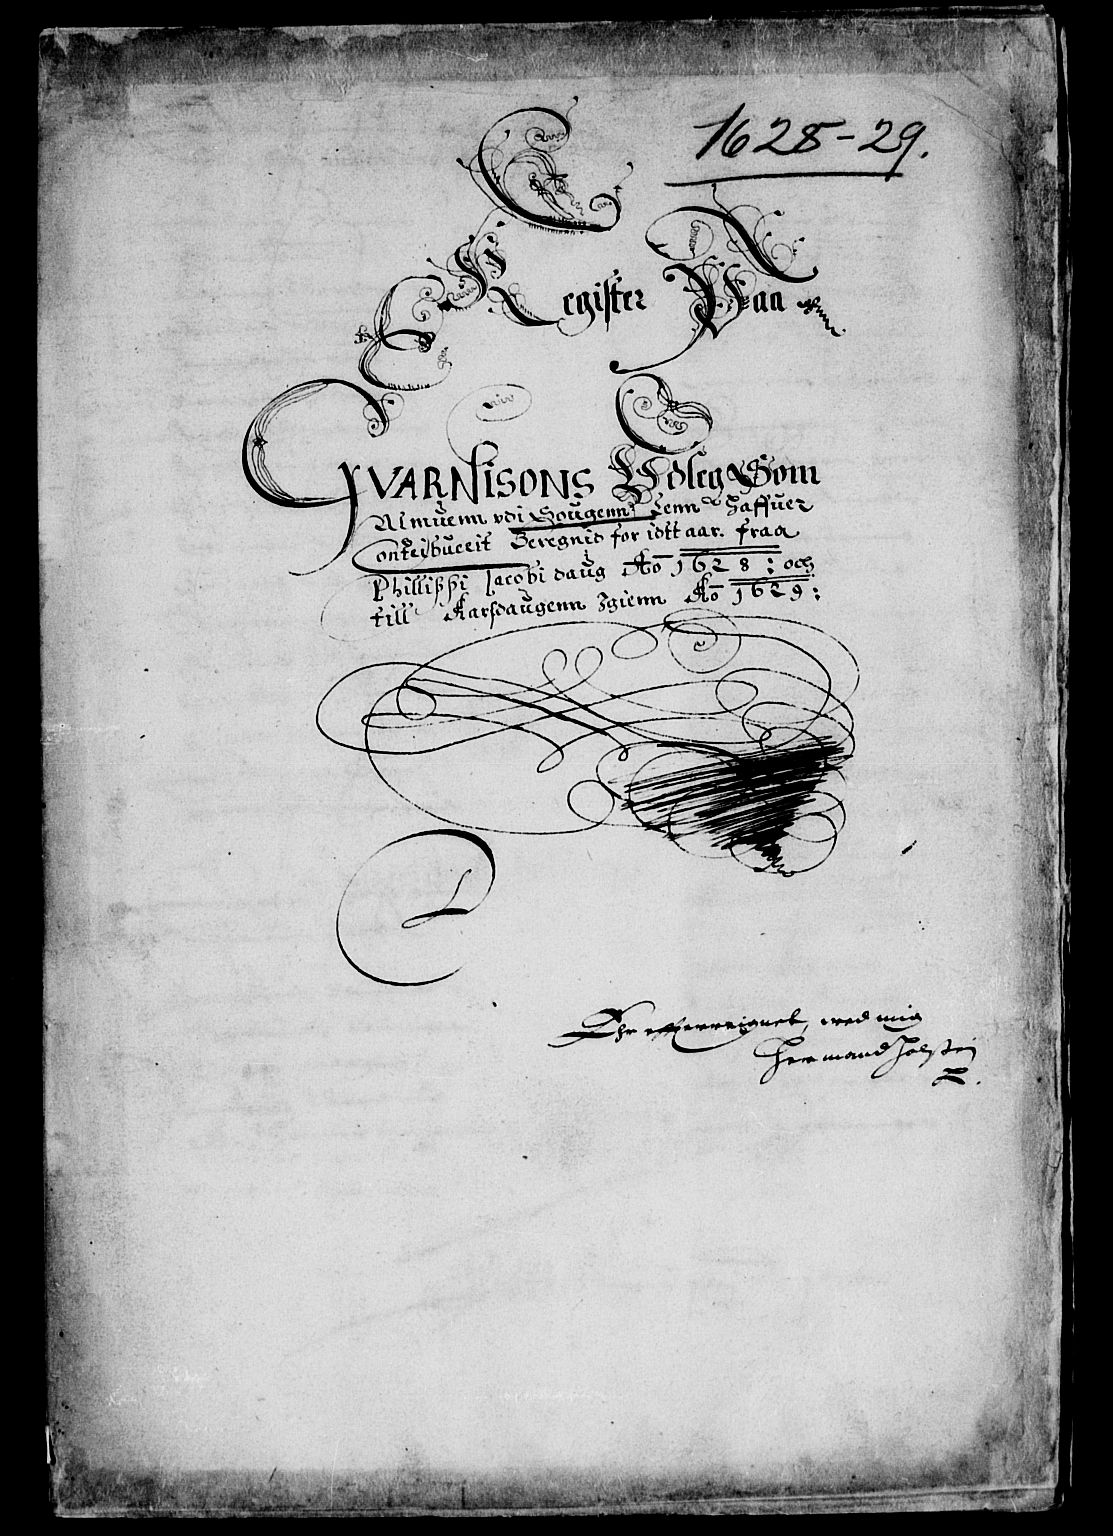 1628-29.
Register Paa
GVARNISONS Udleg Som
Almuenn vdi Sougenns Lenn Haffuer
Contribuerit Beregnid for idtt aar. fraa
Phillippi Jacobi daug Ao 1628: och
till Aarsdaugenn Igienn Ao 1629:
Ehr offuerreignet, wed mig
Hermand Holstein